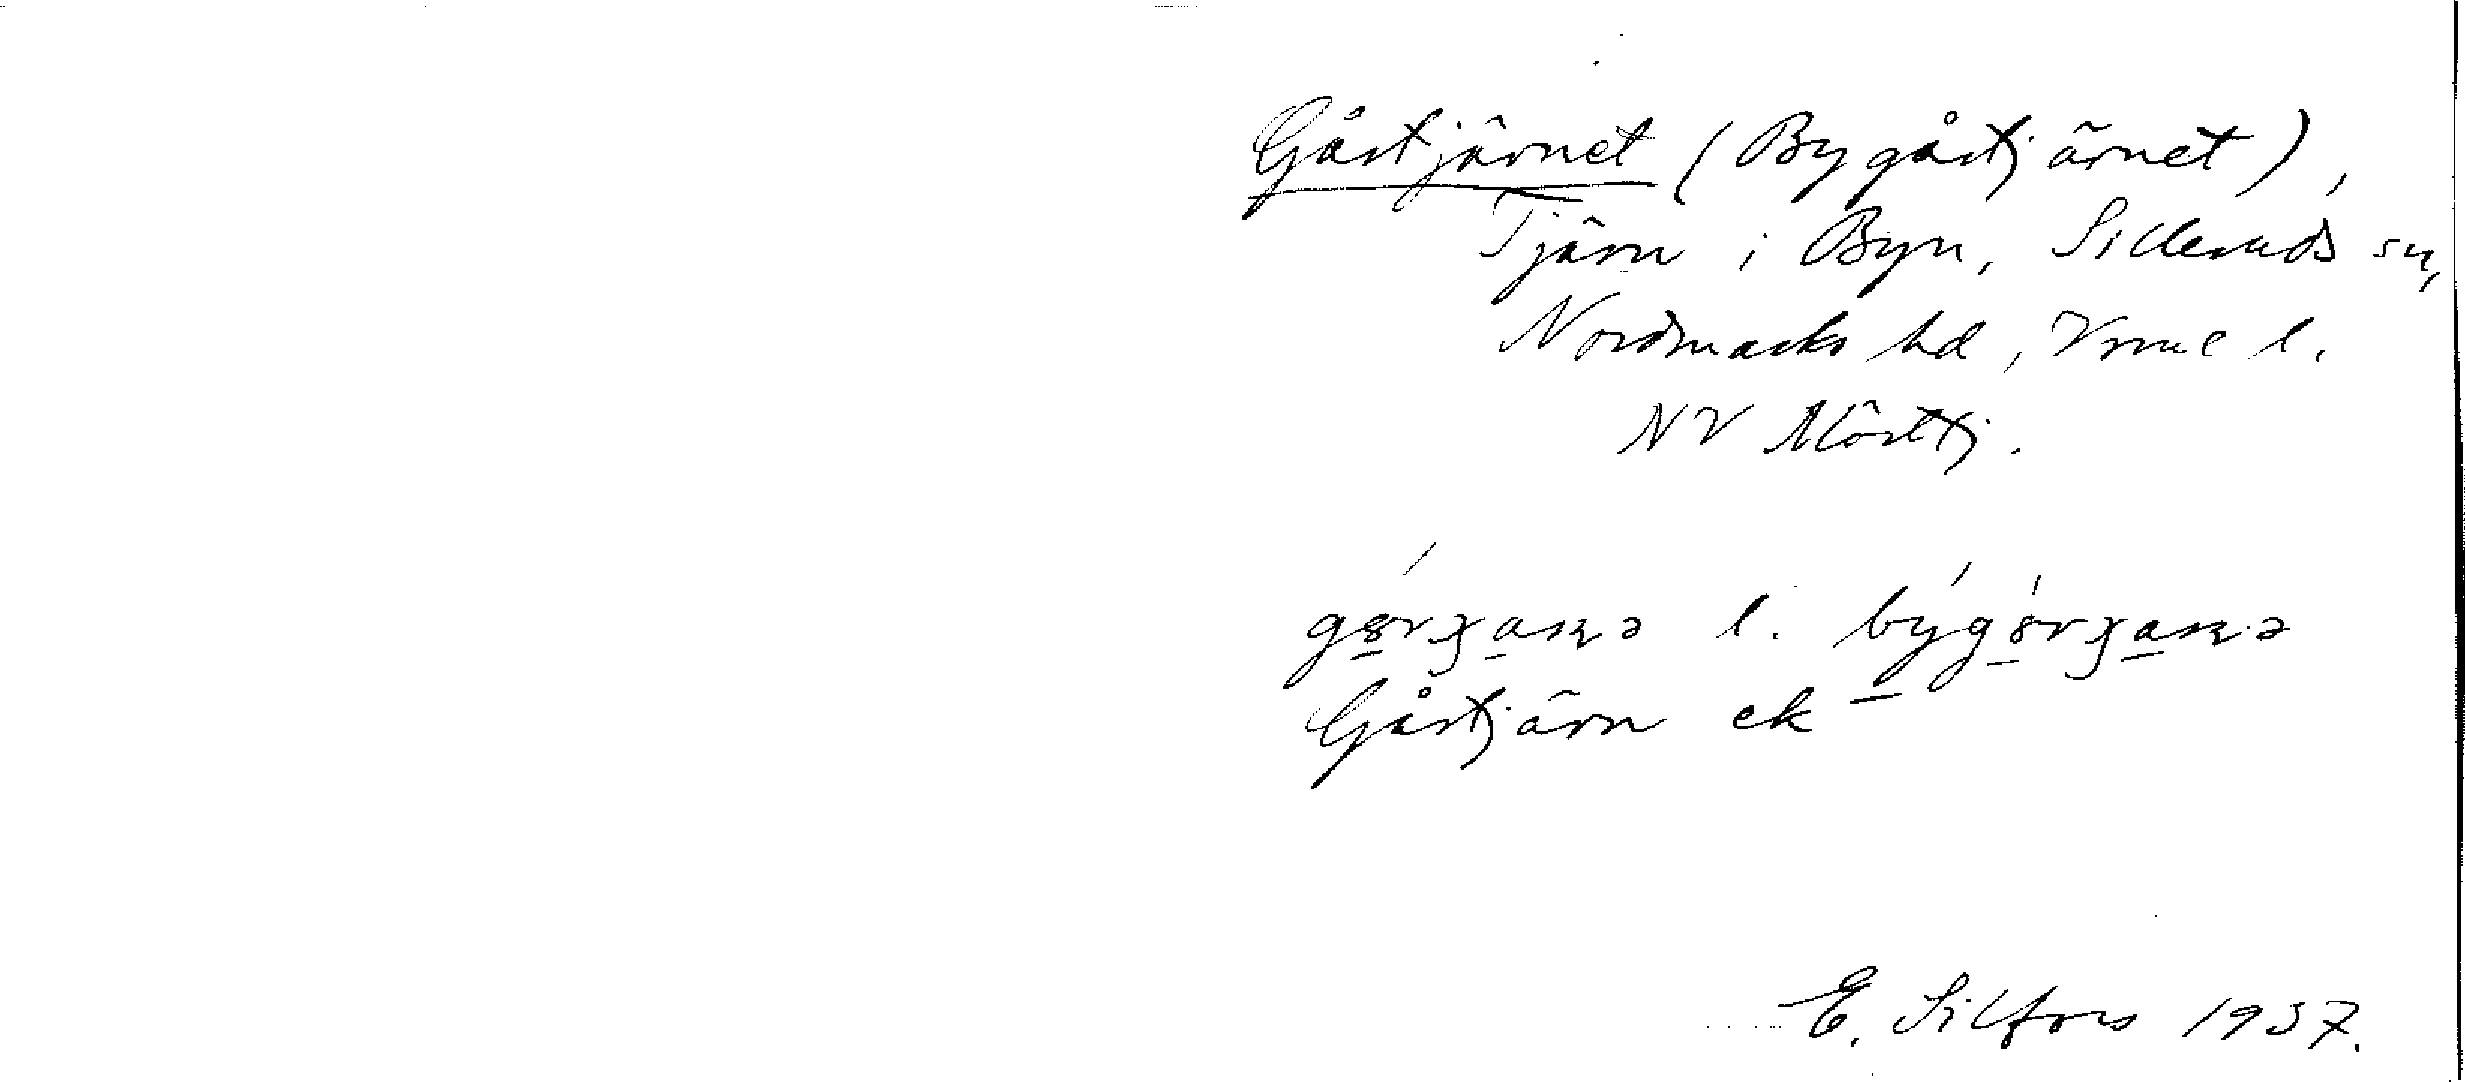 Gåstjärnet (Bygåstjärnet),
Tjärn i Byn, Silleruds sn,
Nordmarks hd, Vrml l.
NV Mörttj.
l.
Gåstjärn ek
E. Silfors 1937.